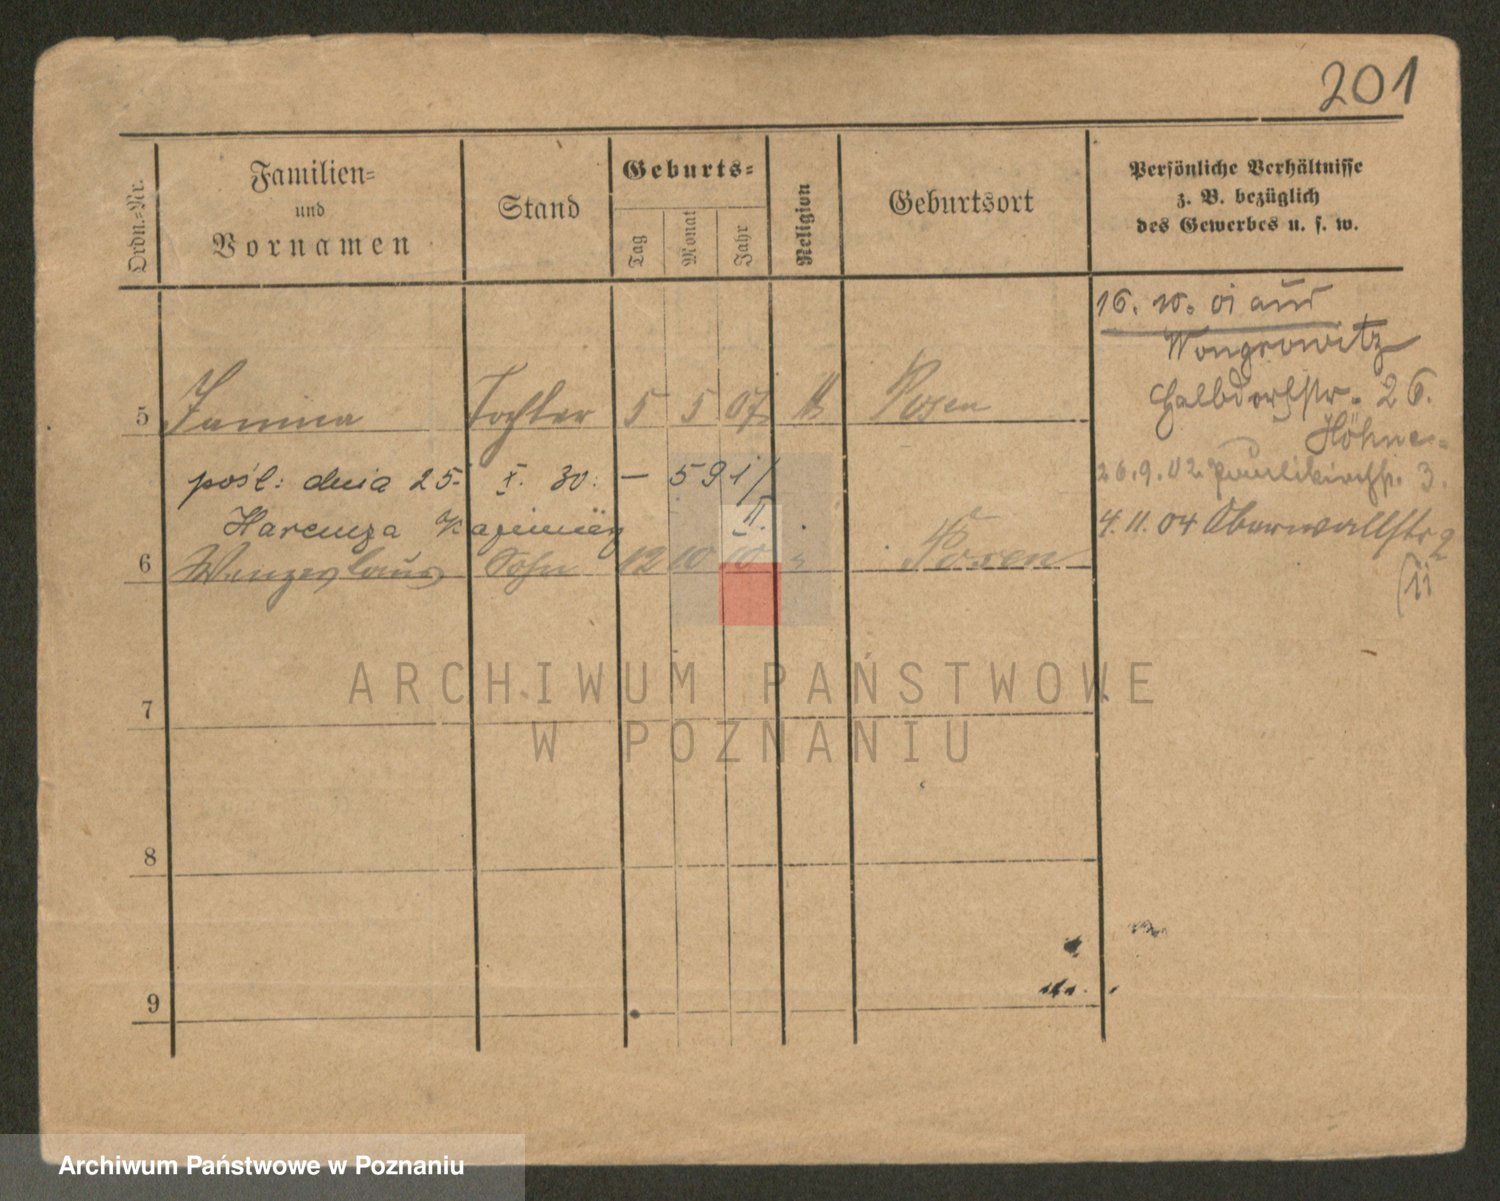 201
Ordn.-Nr.
Familien-
und
Vornamen
Stand
Geburts-
Tag
Monat
Jahr
Religion
Geburtsort
Persönliche Verhältnisse
z. B. bezüglich
des Gewerbes u. s. w.
16. 10. 01 aus
Wongrowitz
Halbdorfstr. 26.
Höhne
26.9.02 Paulikirchstr. 3.
4.11.04 Oberwallstr 2
5 Janina Tochter 5 5 07 Posen
pośl: dnia 25. X. 30. — 591/
II.
Harenza Kazimierz
6 Wenzeslaus Sohn 12 10 10 " Posen
7
8
9
ARCHIWUM PAŃSTWOWE
W POZNANIU
Archiwum Państwowe w Poznaniu